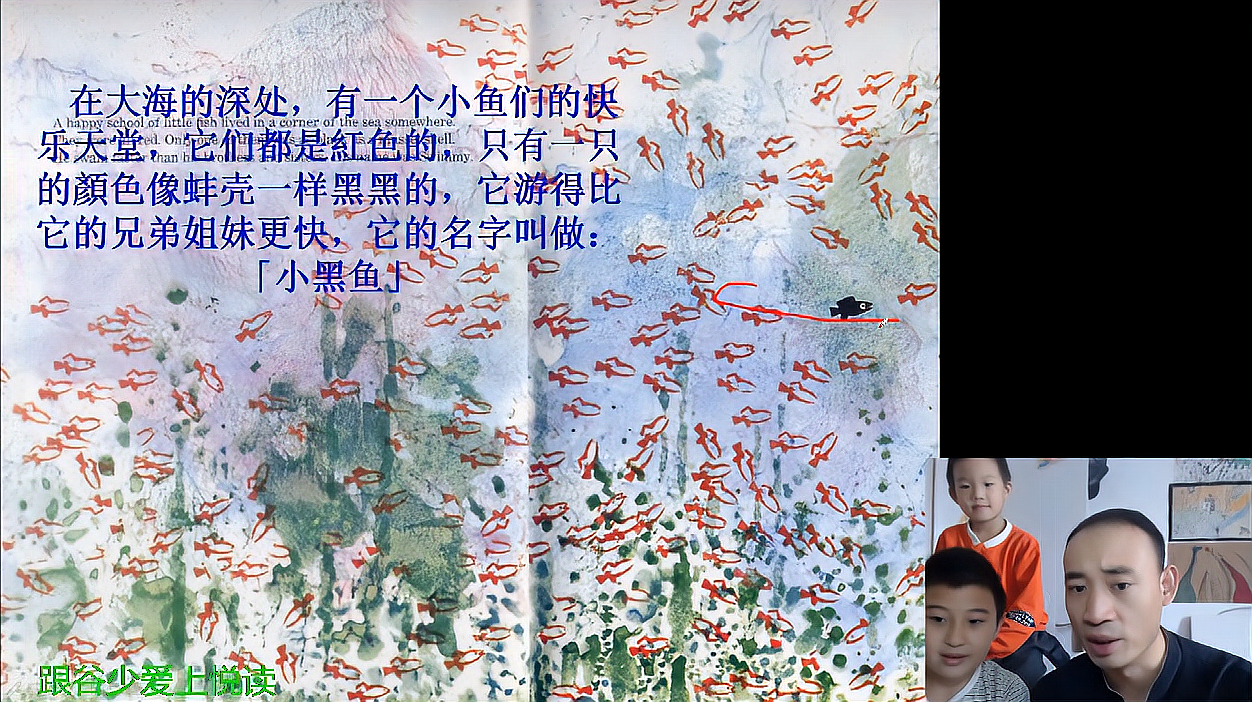 在大海的深处，有一个小鱼们的快
A happy school of little fish lived in a corner of the sea somewhere.
乐天堂，它们都是紅色的，只有一只
的顏色像蚌壳一样黑黑的，它游得比
它的兄弟姐妹更快，它的名字叫做：
「小黑鱼」
跟谷少爱上悦读